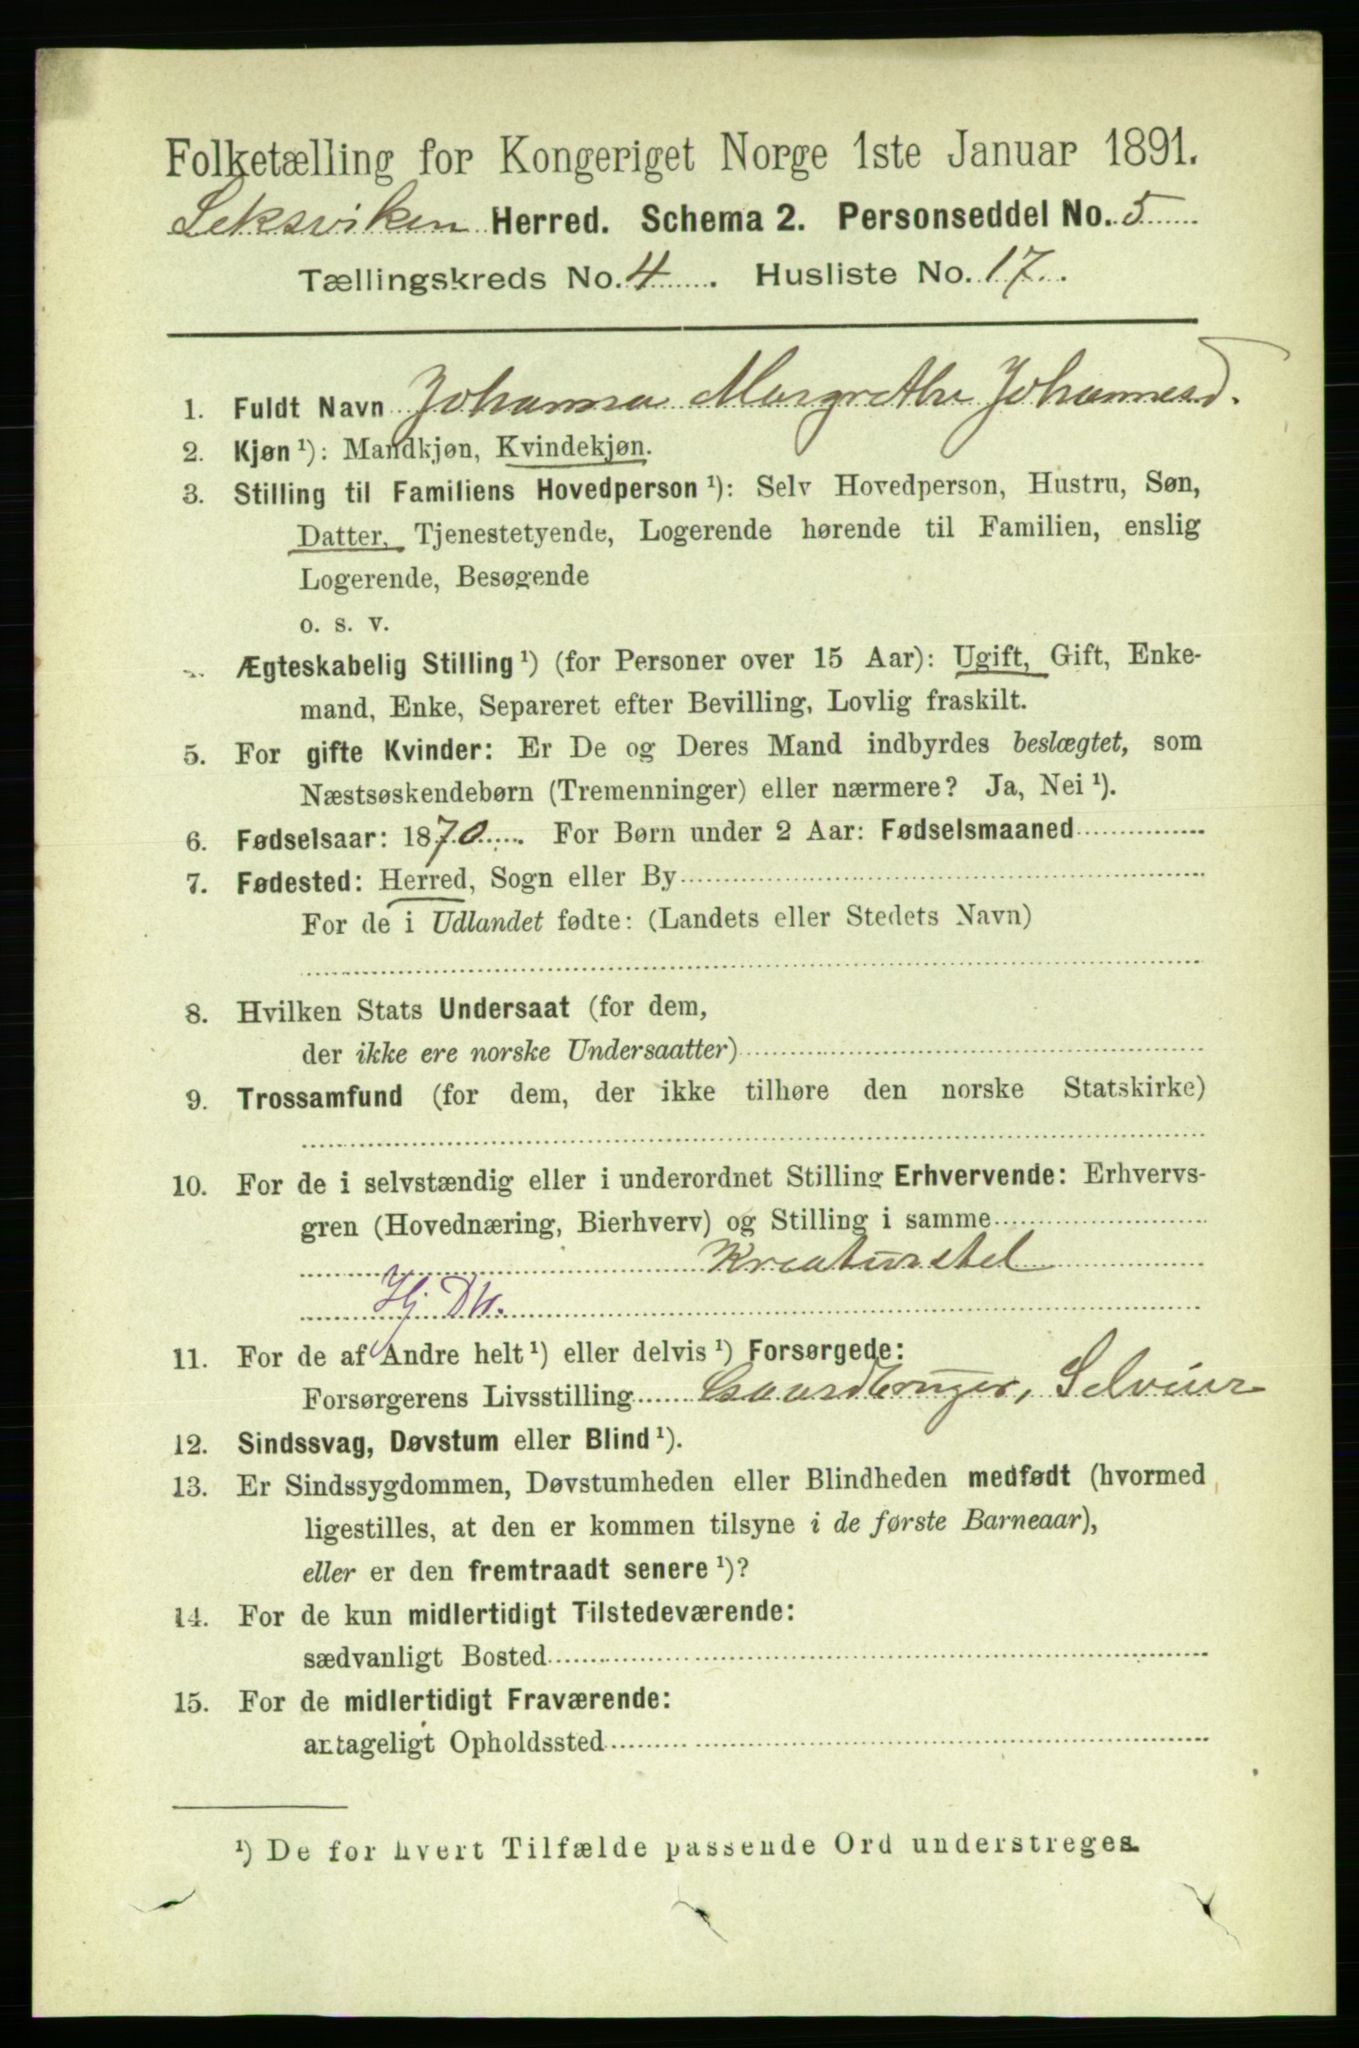 Folketælling for Kongeriget Norge 1ste Januar 1891.
Leksviken Herred. Schema 2. Personseddel No. 5
Tællingskreds No. 4. Husliste No. 17.
1. Fuldt Navn Johanna Margrethe Johannesd.
2. Kjøn ¹): Mandkjøn, Kvindekjøn.
3. Stilling til Familiens Hovedperson ¹): Selv Hovedperson, Hustru, Søn,
Datter, Tjenestetyende, Logerende hørende til Familien, enslig
Logerende, Besøgende
o. s. v.
Ægteskabelig Stilling ¹) (for Personer over 15 Aar): Ugift, Gift, Enke-
mand, Enke, Separeret efter Bevilling, Lovlig fraskilt.
5. For gifte Kvinder: Er De og Deres Mand indbyrdes beslægtet, som
Næstsøskendebørn (Tremenninger) eller nærmere? Ja, Nei ¹).
6. Fødselsaar: 1870. For Børn under 2 Aar: Fødselsmaaned
7. Fødested: Herred, Sogn eller By
For de i Udlandet fødte: (Landets eller Stedets Navn)
8. Hvilken Stats Undersaat (for dem,
der ikke ere norske Undersaatter)
9. Trossamfund (for dem, der ikke tilhøre den norske Statskirke)
10. For de i selvstændig eller i underordnet Stilling Erhvervende: Erhvervs-
gren (Hovednæring, Bierhverv) og Stilling i samme
Kreaturstel
Hj.
11. For de af Andre helt ¹) eller delvis ¹) Forsørgede:
Forsørgerens Livsstilling Gaardbruger, Selveier
12. Sindssvag, Døvstum eller Blind ¹).
13. Er Sindssygdommen, Døvstumheden eller Blindheden medfødt (hvormed
ligestilles, at den er kommen tilsyne i de første Barneaar),
eller er den fremtraadt senere ¹)?
14. For de kun midlertidigt Tilstedeværende:
sædvanligt Bosted
15. For de midlertidigt Fraværende:
antageligt Opholdssted
¹) De for hvert Tilfælde passende Ord understreges.